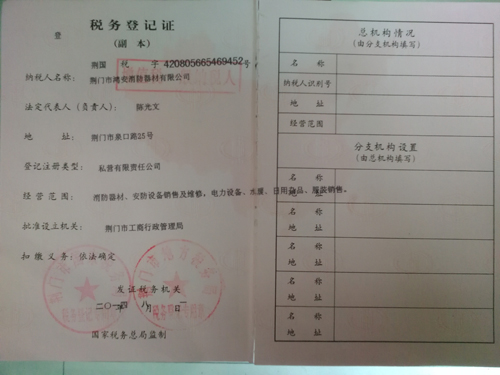 税务登记证
（副本）
登
荆国 税 字 420805665469452号
纳税人名称： 荆门市鸿安消防器材有限公司
法定代表人（负责人）： 陈光文
地 址： 荆门市泉口路25号
登记注册类型： 私营有限责任公司
经营范围： 消防器材、安防设备销售及维修，电力设备、水暖、日用杂品、服装销售。
批准设立机关： 荆门市工商行政管理局
扣缴义务：依法确定
发证税务机关
二〇一四 八月 一
国家税务总局监制
总机构情况
（由分支机构填写）
名 称
纳税人识别号
地 址
经营范围
分支机构设置
（由总机构填写）
名 称
地 址
名 称
地 址
名 称
地 址
名 称
地 址
名 称
地 址